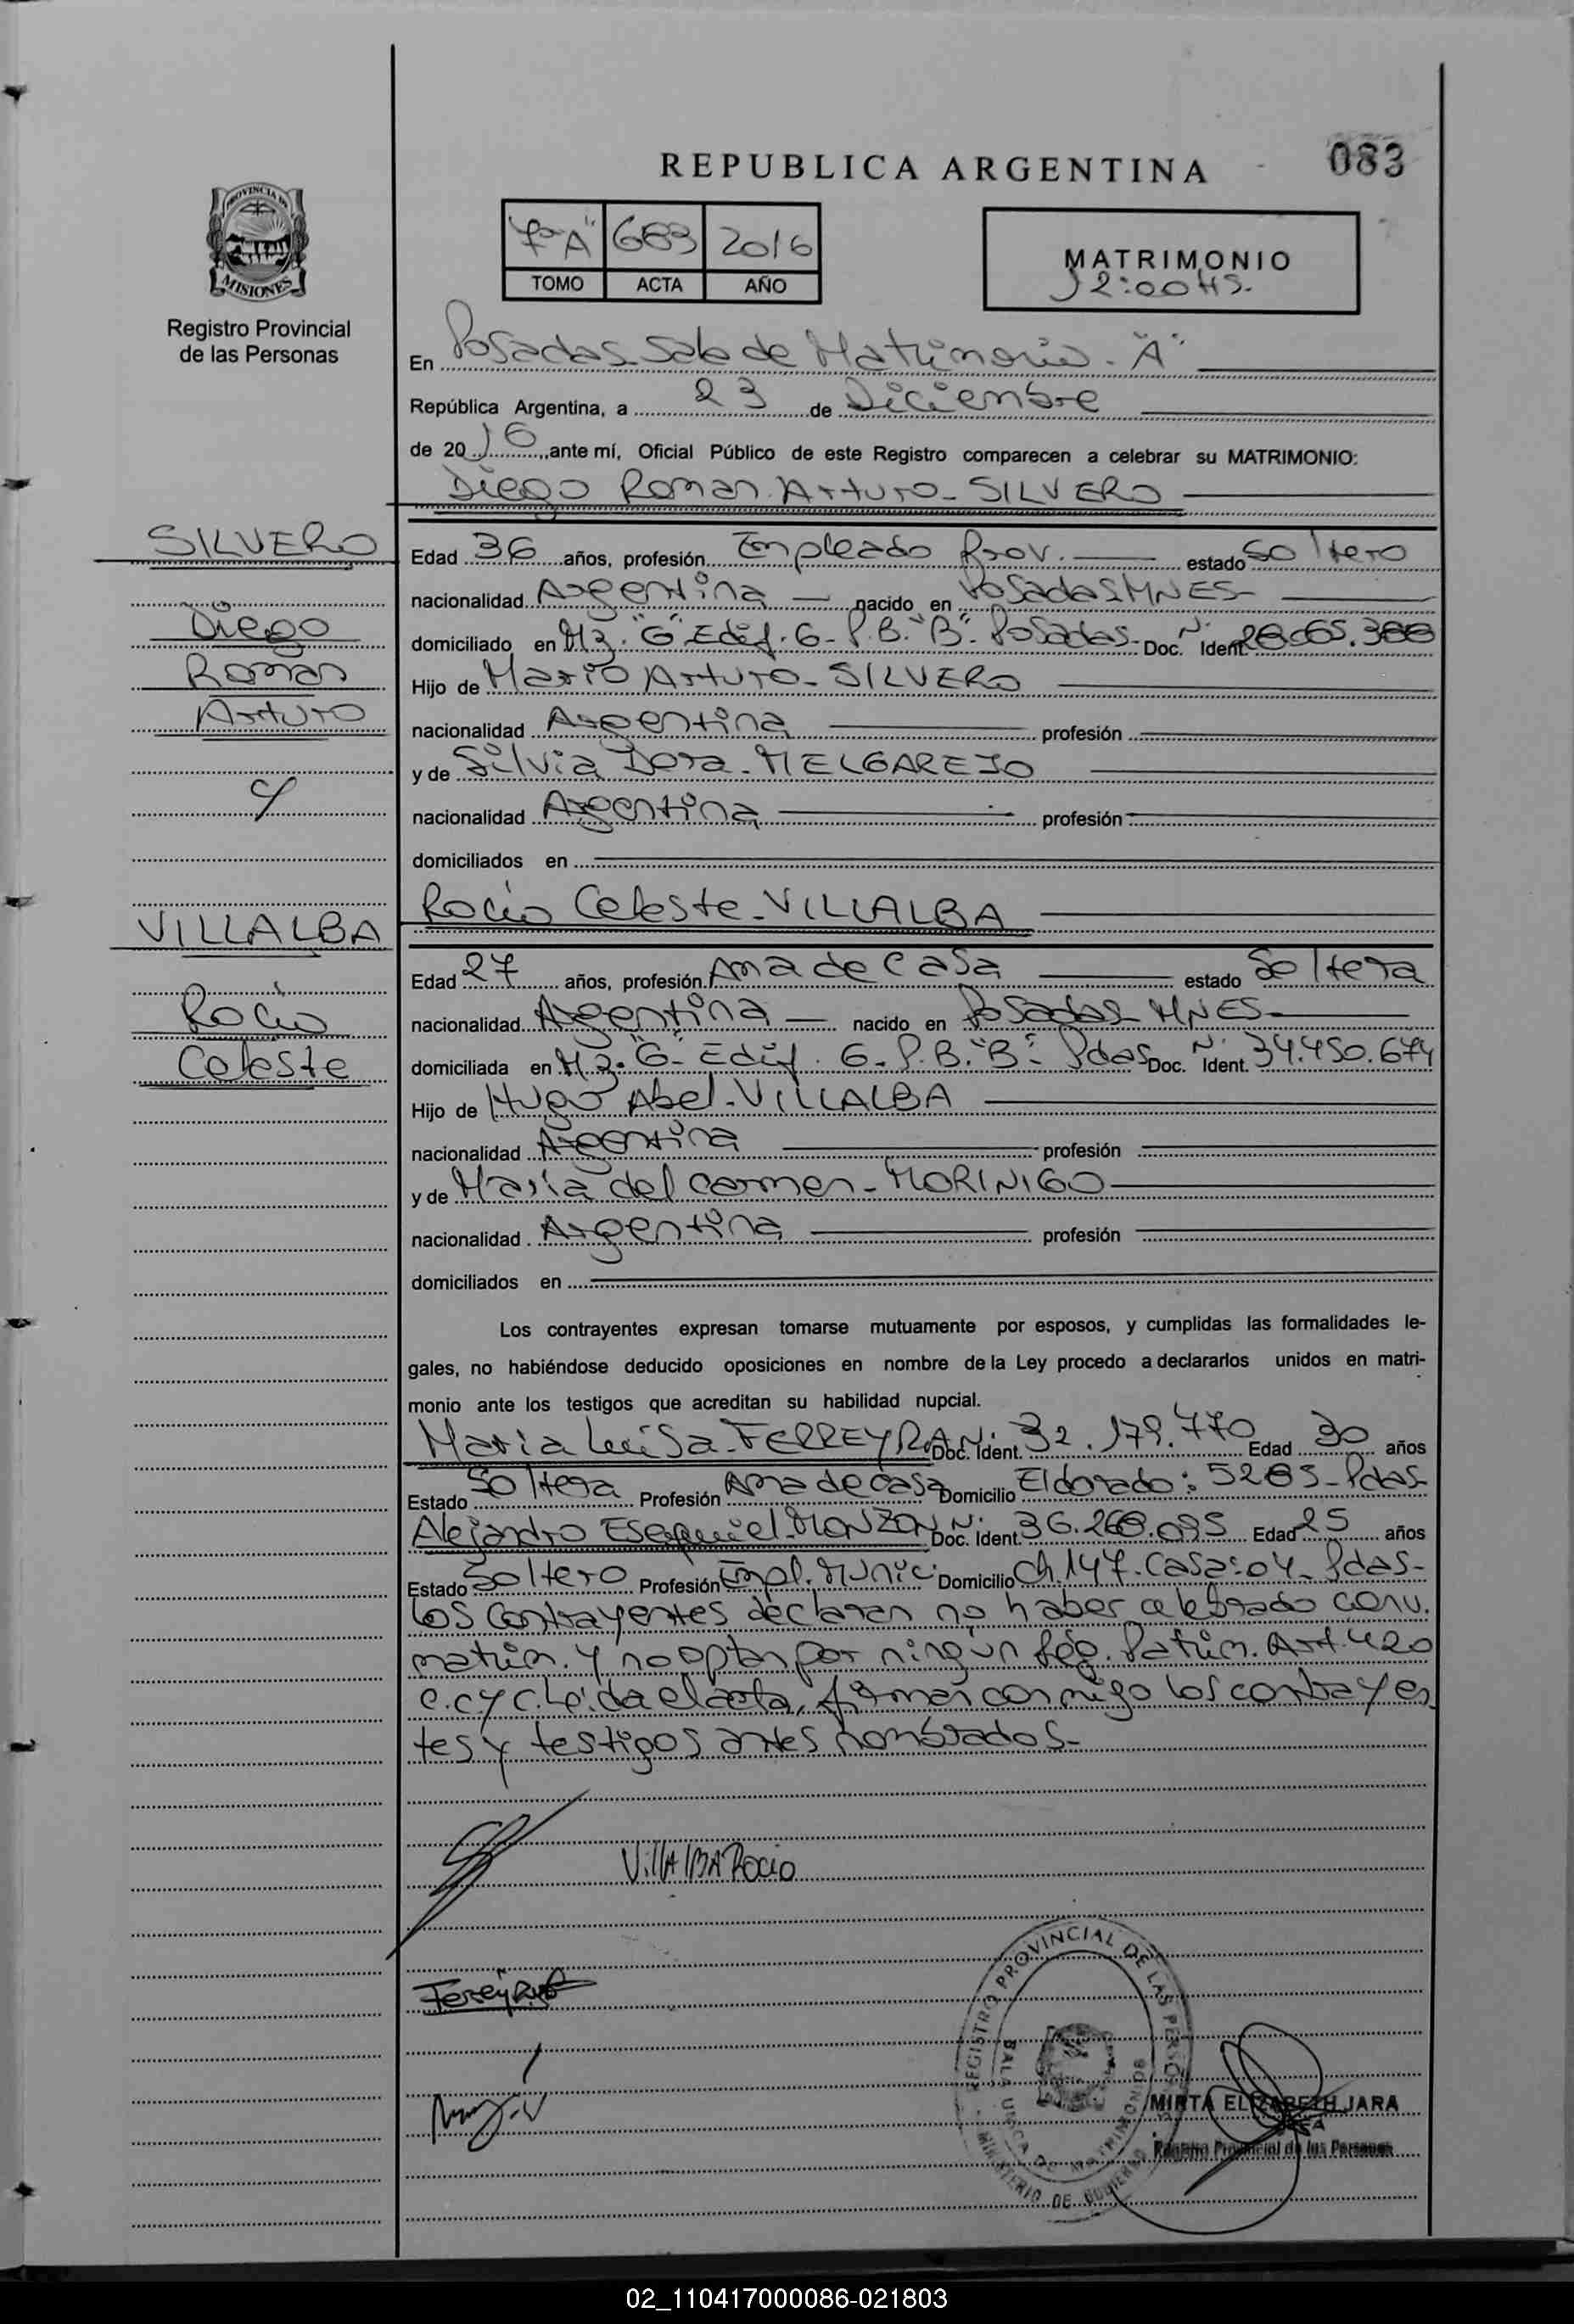 REPUBLICA ARGENTINA
083
PROVINCIA DE
MISIONES
Registro Provincial
de las Personas
7º"A" 683 2016
TOMO ACTA AÑO
MATRIMONIO
12:00HS.
En Posadas Sala de Matrimonio - "A"
República Argentina, a 23 de Diciembre
de 2016, ante mí, Oficial Público de este Registro comparecen a celebrar su MATRIMONIO:
Diego Roman Arturo - SILVERO
SILVERO
Diego
Roman
Arturo
c/
VILLALBA
Rocio
Celeste
Edad 36 años, profesión Empleado Prov. estado Soltero
nacionalidad Argentina nacido en Posadas MNES-
domiciliado en Mz. "G" Edif. 6- P.B. "B"- Posadas- Doc. Nº Ident.
Hijo de Mario Arturo - SILVERO
nacionalidad Argentina profesión
y de Silvia Dora - MELGAREJO
nacionalidad Argentina profesión
domiciliados en
Rocio Celeste - VILLALBA
Edad 27 años, profesión Ama de Casa estado Soltera
nacionalidad Argentina nacido en Posadas MNES-
domiciliada en Mz. "G"- Edif. 6- P.B. "B"- Pdas Doc. Nº Ident. 34.450.674
Hijo de Hugo Abel - VILLALBA
nacionalidad Argentina profesión
y de Maria del Carmen - MORINIGO
nacionalidad Argentina profesión
domiciliados en
Los contrayentes expresan tomarse mutuamente por esposos, y cumplidas las formalidades le-
gales, no habiéndose deducido oposiciones en nombre de la Ley procedo a declararlos unidos en matri-
monio ante los testigos que acreditan su habilidad nupcial.
Maria Luisa - FERREYRA Doc. Nº Ident. 32.179.770 Edad 30 años
Estado Soltera Profesión Ama de casa Domicilio Eldorado: 5285- Pdas-
Alejandro Esequiel - MONZON Doc. Nº Ident. 36.268.095 Edad 25 años
Estado Soltero Profesión Empl. Munic. Domicilio Ch.147- Casa:04- Pdas-
Los contrayentes declaran no haber celebrado conv.
matrim. y no optan por ningún Rég. Patrim. Art. 420
C.C y C. Leída el acta, firman conmigo los contrayen
tes y testigos antes nombrados-
VillAlBA Rocio
Ferreyra
REGISTRO PROVINCIAL DE LAS PERSONAS
MINISTERIO DE GOBIERNO
MIRTA ELIZABETH JARA
Registro Provincial de las Personas
02_110417000086-021803